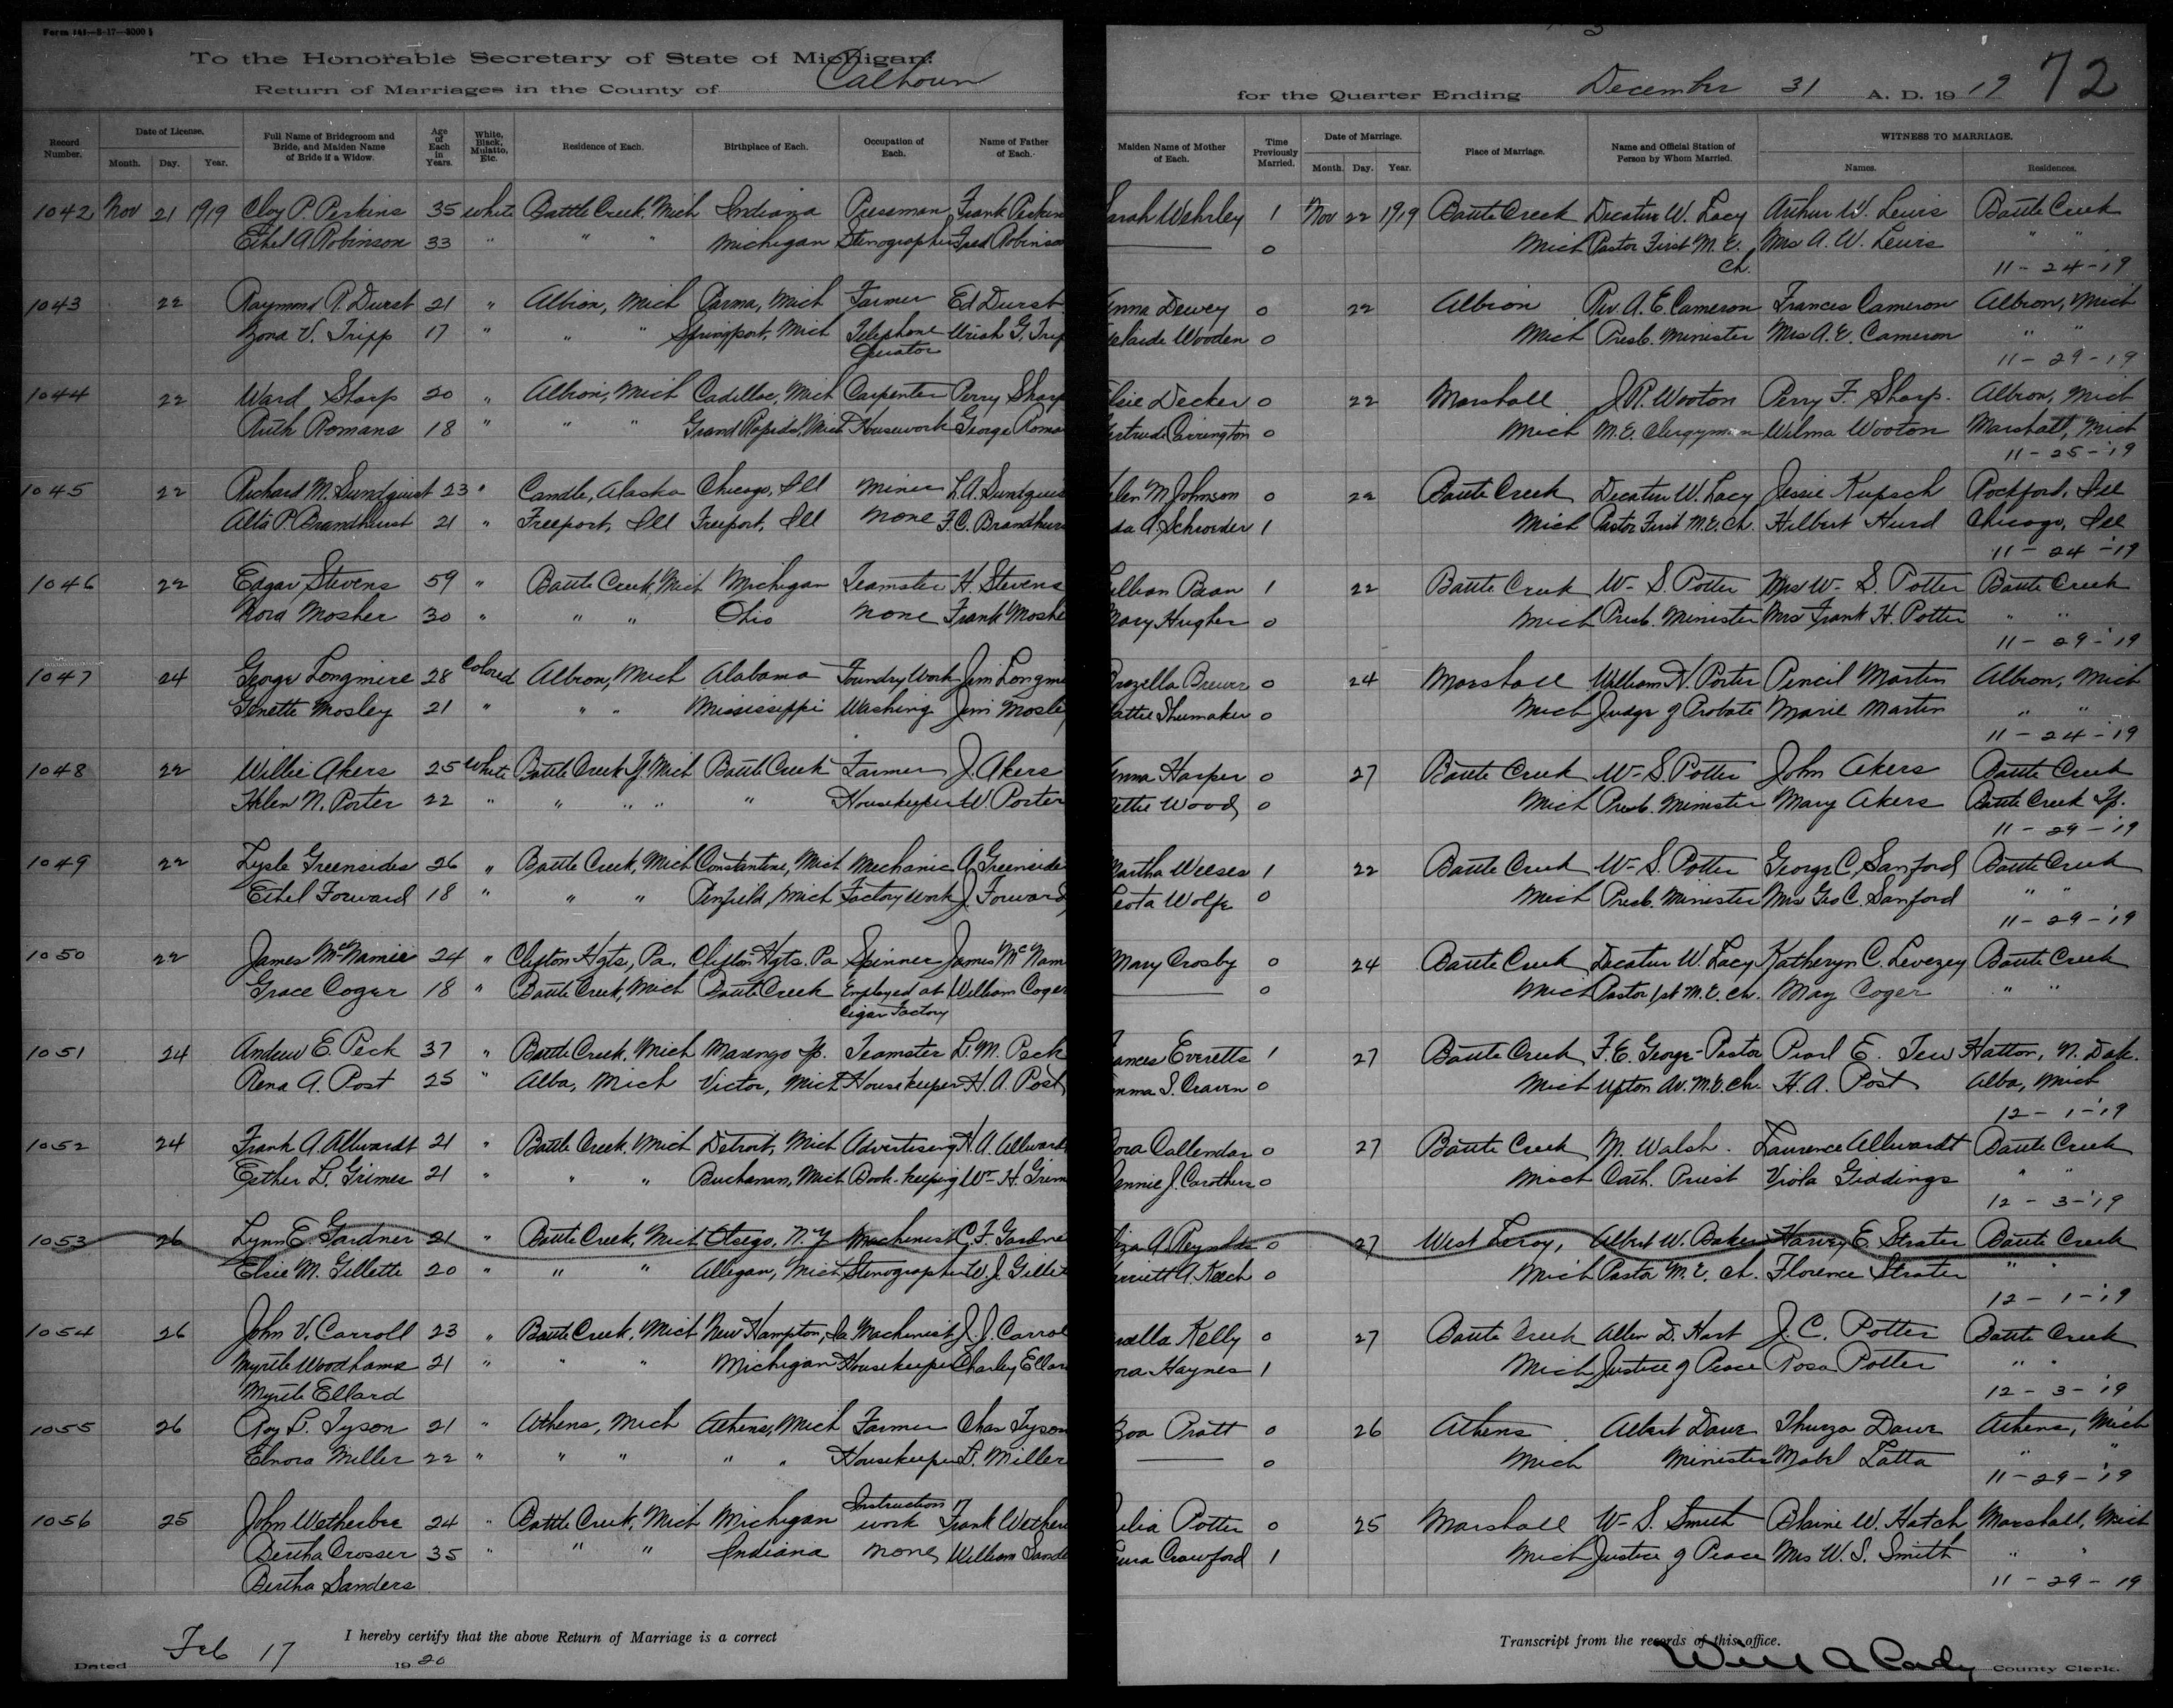 Form 141—8-17—3000
To the Honorable Secretary of State of Michigan:
Return of Marriages in the County of Calhoun for the Quarter Ending December 31 A. D. 19 19 72
Record Number. Date of License. Month. Day. Year. Full Name of Bridegroom and Bride, and Maiden Name of Bride if a Widow. Age of Each in Years. White, Black, Mulatto, Etc. Residence of Each. Birthplace of Each. Occupation of Each. Name of Father of Each. Maiden Name of Mother of Each. Time Previously Married. Date of Marriage. Month. Day. Year. Place of Marriage. Name and Official Station of Person by Whom Married. WITNESS TO MARRIAGE. Names. Residences.
1042 Nov 21 1919 Cloy P. Perkins 35 White Battle Creek, Mich Indiana Pressman Frank Perkins arah Wehrley 1 Nov 22 1919 Battle Creek Decatur W. Lacy Arthur W. Lewis Battle Creek
Ethel A Robinson 33 " " " Michigan Stenographer Fred Robinso — 0 Mich Pastor First M. E. Mrs A. W. Lewis " "
Ch. 11-24-19
1043 22 Raymond R. Durst 21 " Albion, Mich Parma, Mich Farmer Ed Durst mma Dewey 0 22 Albion Rev. A. E. Cameron Frances Cameron Albion, Mich
Zona V. Tripp 17 " " " Springport, Mich Telephone Uriah G. Trip elaide Wooden 0 Mich Presb. Minister Mrs A. E. Cameron " "
Operator 11-29-19
1044 22 Ward Sharp 20 " Albion, Mich Cadillac, Mich Carpenter Perry Sharp lsie Decker 0 22 Marshall J. R. Wooton Perry F. Sharp. Albion, Mich
Ruth Romans 18 " " " Grand Rapids, Mich Housework George Roma rtrude Carrington 0 Mich M. E. Clergyman Wilma Wooton Marshall, Mich
11-25-'19
1045 22 Richard M. Sundquist 23 " Candle, Alaska Chicago, Ill Miner L. A. Sundquis len M Johnson 0 22 Battle Creek Decatur W. Lacy Jessie Kupsch Rockford, Ill
Alta P. Brandhurst 21 " Freeport, Ill Freeport, Ill None F. C. Brandhurs da A Schroeder 1 Mich Pastor First M. E. Ch. Hilbert Hurd Chicago, Ill
11-24-'19
1046 22 Edgar Stevens 59 " Battle Creek, Mich Michigan Teamster H. Stevens illian Bean 1 22 Battle Creek Wm S. Potter Mrs Wm S. Potter Battle Creek
Nora Mosher 30 " " " Ohio None Frank Moshe Mary Hughes 0 Mich Presb. Minister Mrs Frank H. Potter " "
11-29-'19
1047 24 George Longmire 28 Colored Albion, Mich Alabama Foundry Work Jim Longmi rozella Brewer 0 24 Marshall William H. Porter Pencil Martin Albion, Mich
Genette Mosley 21 " " " Mississippi Washing Jim Mosley attie Shumaker 0 Mich Judge of Probate Marie Martin " "
11-24-'19
1048 22 Willie Akers 25 White Battle Creek Tp Mich Battle Creek Farmer J. Akers nna Harper 0 27 Battle Creek Wm S. Potter John Akers Battle Creek
Helen N. Porter 22 " " " " " Housekeeper W. Porter ettie Wood 0 Mich Presb. Minister Mary Akers Battle Creek Tp.
11-29-'19
1049 22 Lysle Greensides 26 " Battle Creek, Mich Constantine, Mich Mechanic A. Greenside artha Weeses 1 22 Battle Creek Wm S. Potter George C. Sanford Battle Creek
Ethel Forward 18 " " " Penfield, Mich Factory Work J. Forward eota Wolfe 0 Mich Presb. Minister Mrs Geo C. Sanford " "
11-29-'19
1050 22 James McNamee 24 " Clifton Hgts, Pa. Clifton Hgts. Pa Spinner James McNam Mary Crosby 0 24 Battle Creek Decatur W. Lacy Katheryn C. Levezey Battle Creek
Grace Coger 18 " Battle Creek, Mich Battle Creek Employed at William Coger — 0 Mich Pastor 1st M. E. Ch. May Coger " "
Cigar Factory
1051 24 Andrew E. Peck 37 " Battle Creek, Mich Marengo Tp. Teamster L. M. Peck ances Everetts 1 27 Battle Creek F. E. George-Pastor Pearl E. Tew Hatton, N. Dak.
Rena A. Post 25 " Alba, Mich Victor, Mich Housekeeper H. A. Post mma S. Craven 0 Mich Upton Av. M. E. Ch. H. A. Post Alba, Mich
12-1-'19
1052 24 Frank A. Allwardt 21 " Battle Creek, Mich Detroit, Mich Advertising H. A. Allward ora Callendar 0 27 Battle Creek M. Walsh. Laurence Allwardt Battle Creek
Esther L. Grimes 21 " " " Buchanan, Mich Book-keeping Wm H. Grim ennie J. Carothers 0 Mich Cath. Priest Viola Giddings " "
12-3-'19
1053 26 Lynn E. Gardner 21 " Battle Creek, Mich Otsego, N. Y Machinist C. F. Gardne iza A Reynolds 0 27 West Leroy, Albert W. Baker Harvey E. Strater Battle Creek
Elsie M. Gillette 20 " " " Allegan, Mich Stenographer W. J. Gillet rriett A. Keech 0 Mich Pastor M. E. Ch. Florence Strater " "
12-1-'19
1054 26 John V. Carroll 23 " Battle Creek, Mich New Hampton, Ia Machinist J. J. Carrol uella Kelly 0 27 Battle Creek Allen D. Hart J. C. Potter Battle Creek
Myrtle Woodhams 21 " " " Michigan Housekeeper Charley Ellar ora Haynes 1 Mich Justice of Peace Rosa Potter " "
Myrtle Ellard 12-3-'19
1055 26 Roy L. Tyson 21 " Athens, Mich Athens, Mich Farmer Chas Tyson Zoa Pratt 0 26 Athens Albert Dawe Thurza Dawe Athens, Mich
Elnora Miller 22 " " " " " Housekeeper L. Miller — 0 Mich Minister Mabel Latta " "
11-29-'19
1056 25 John Wetherbee 24 " Battle Creek, Mich Michigan Instruction work Frank Wether ulia Potter 0 25 Marshall Wm S. Smith Blaine W. Hatch Marshall, Mich
Bertha Crosser 35 " " " Indiana None William Sande ura Crawford 1 Mich Justice of Peace Mrs W. S. Smith " "
Bertha Sanders 11-29-19
I hereby certify that the above Return of Marriage is a correct Transcript from the records of this office.
Dated Feb 17 19 20 Will A Cady County Clerk.